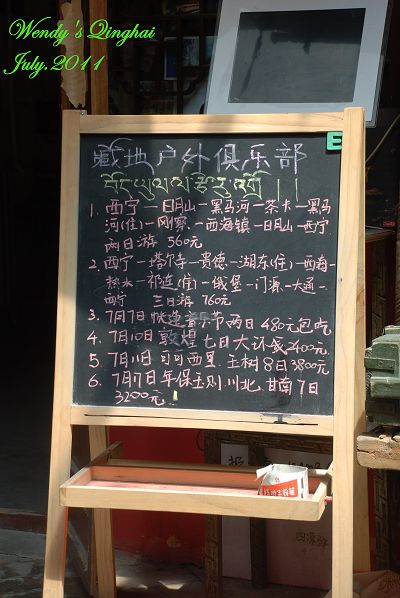 Wendy's Qinghai
July.2011
E
藏地户外俱乐部
བོད་ཡུལ་ལ་
1. 西宁－日月山－黑马河－茶卡－黑马
河(住)－刚察－西海镇－日月山－西宁
两日游 560元
2. 西宁－塔尔寺－贵德－湖东(住)－西海－
热水－祁连(住)－俄堡－门源－大通－
西宁 三日游 760元
3. 7月7日 音乐节两日 480元包吃
4. 7月10日 敦煌七日大环线2400元
5. 7月11日 可可西里.玉树8日3800元
6. 7月17日年保玉则.川北.甘南7日
3200元